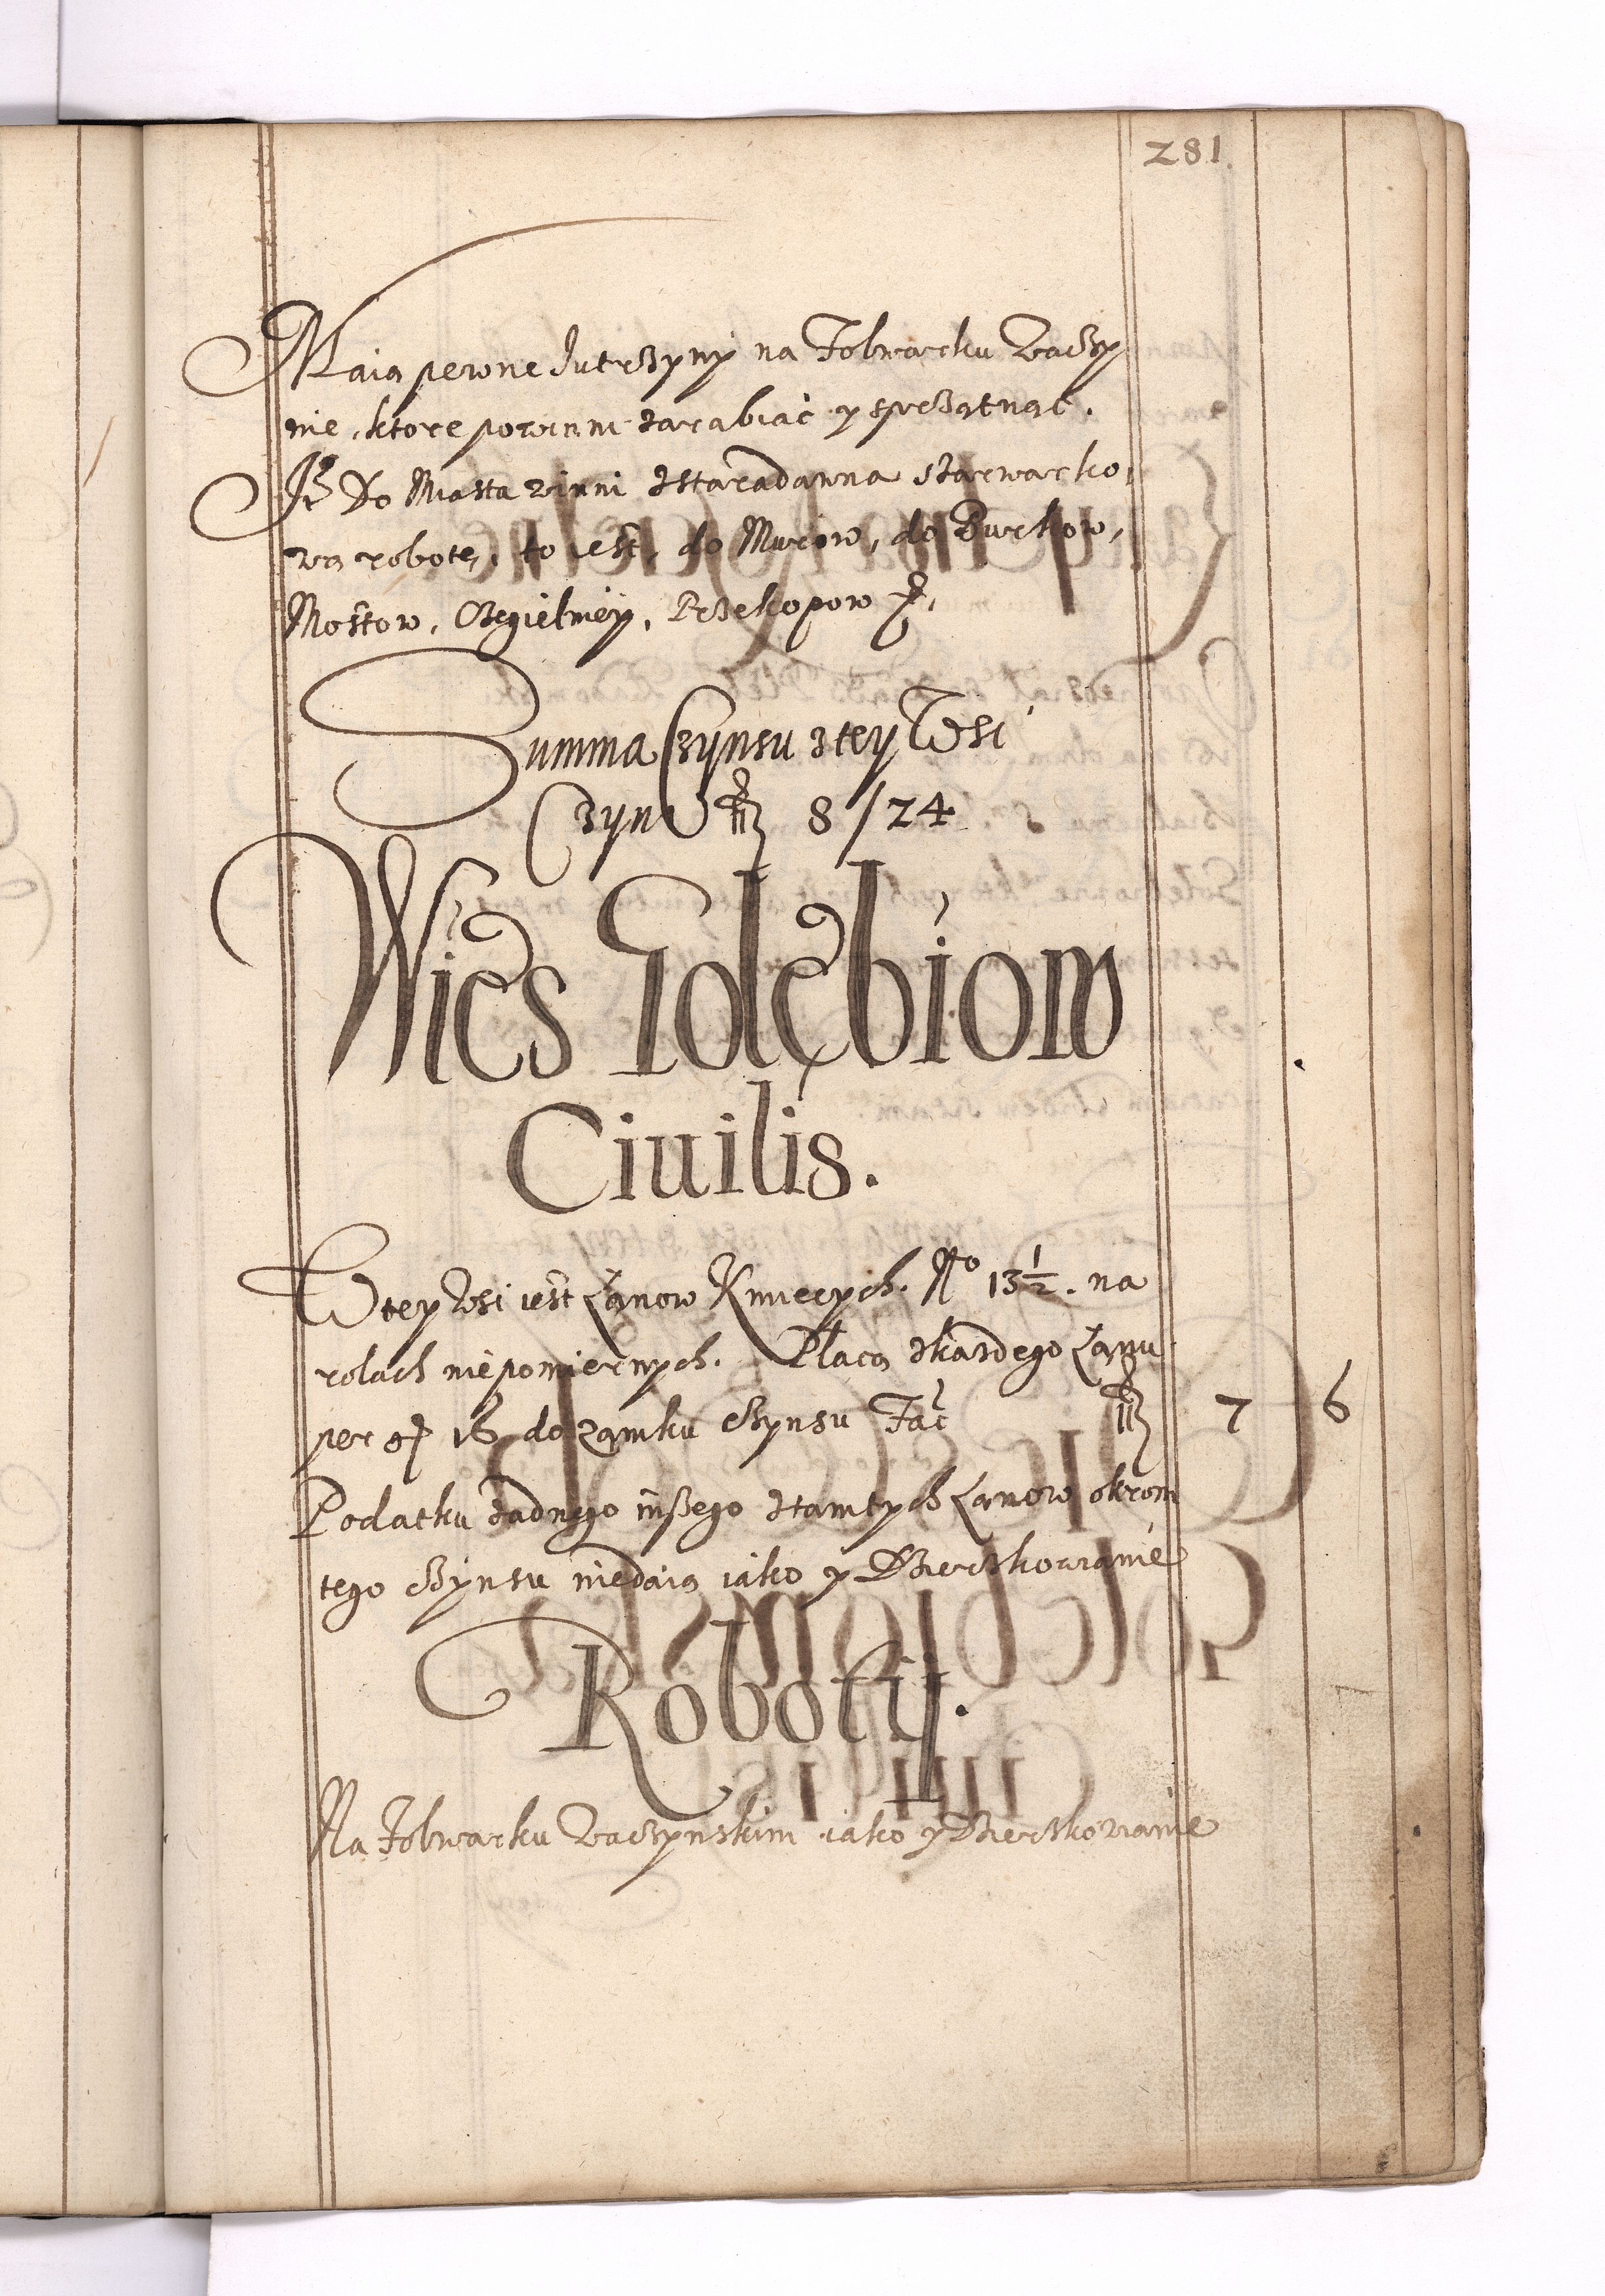 281.
Maią pewne Jutrzyny na Folwarku Raczy
nie, ktore powinni zarabiać y sprzątnąć.
Jt Do Miasta winni zstaradawna szarwarko,
wą robotę, to iest, do Murow, do Burkow,
Mostow, Czegielniey, Przekopow
Summa Czynsu ztey Wsi
Czyni 8/24
Wies Gołębiow
Ciuilis.
W tey Wsi iest Łanow Kmiecych. No 13½. na
rolach niepomiernych. Płacą zkazdego Łanu
per gr 16 do zamku Czynsu Fac 7 6
Podatku zadnego inszego ztamtych Łanow okrom
tego Czynsu niedaią iako y Dzierzkowianie
Roboty.
Na Folwarku Raczynskim iako y Dzierzkowianie